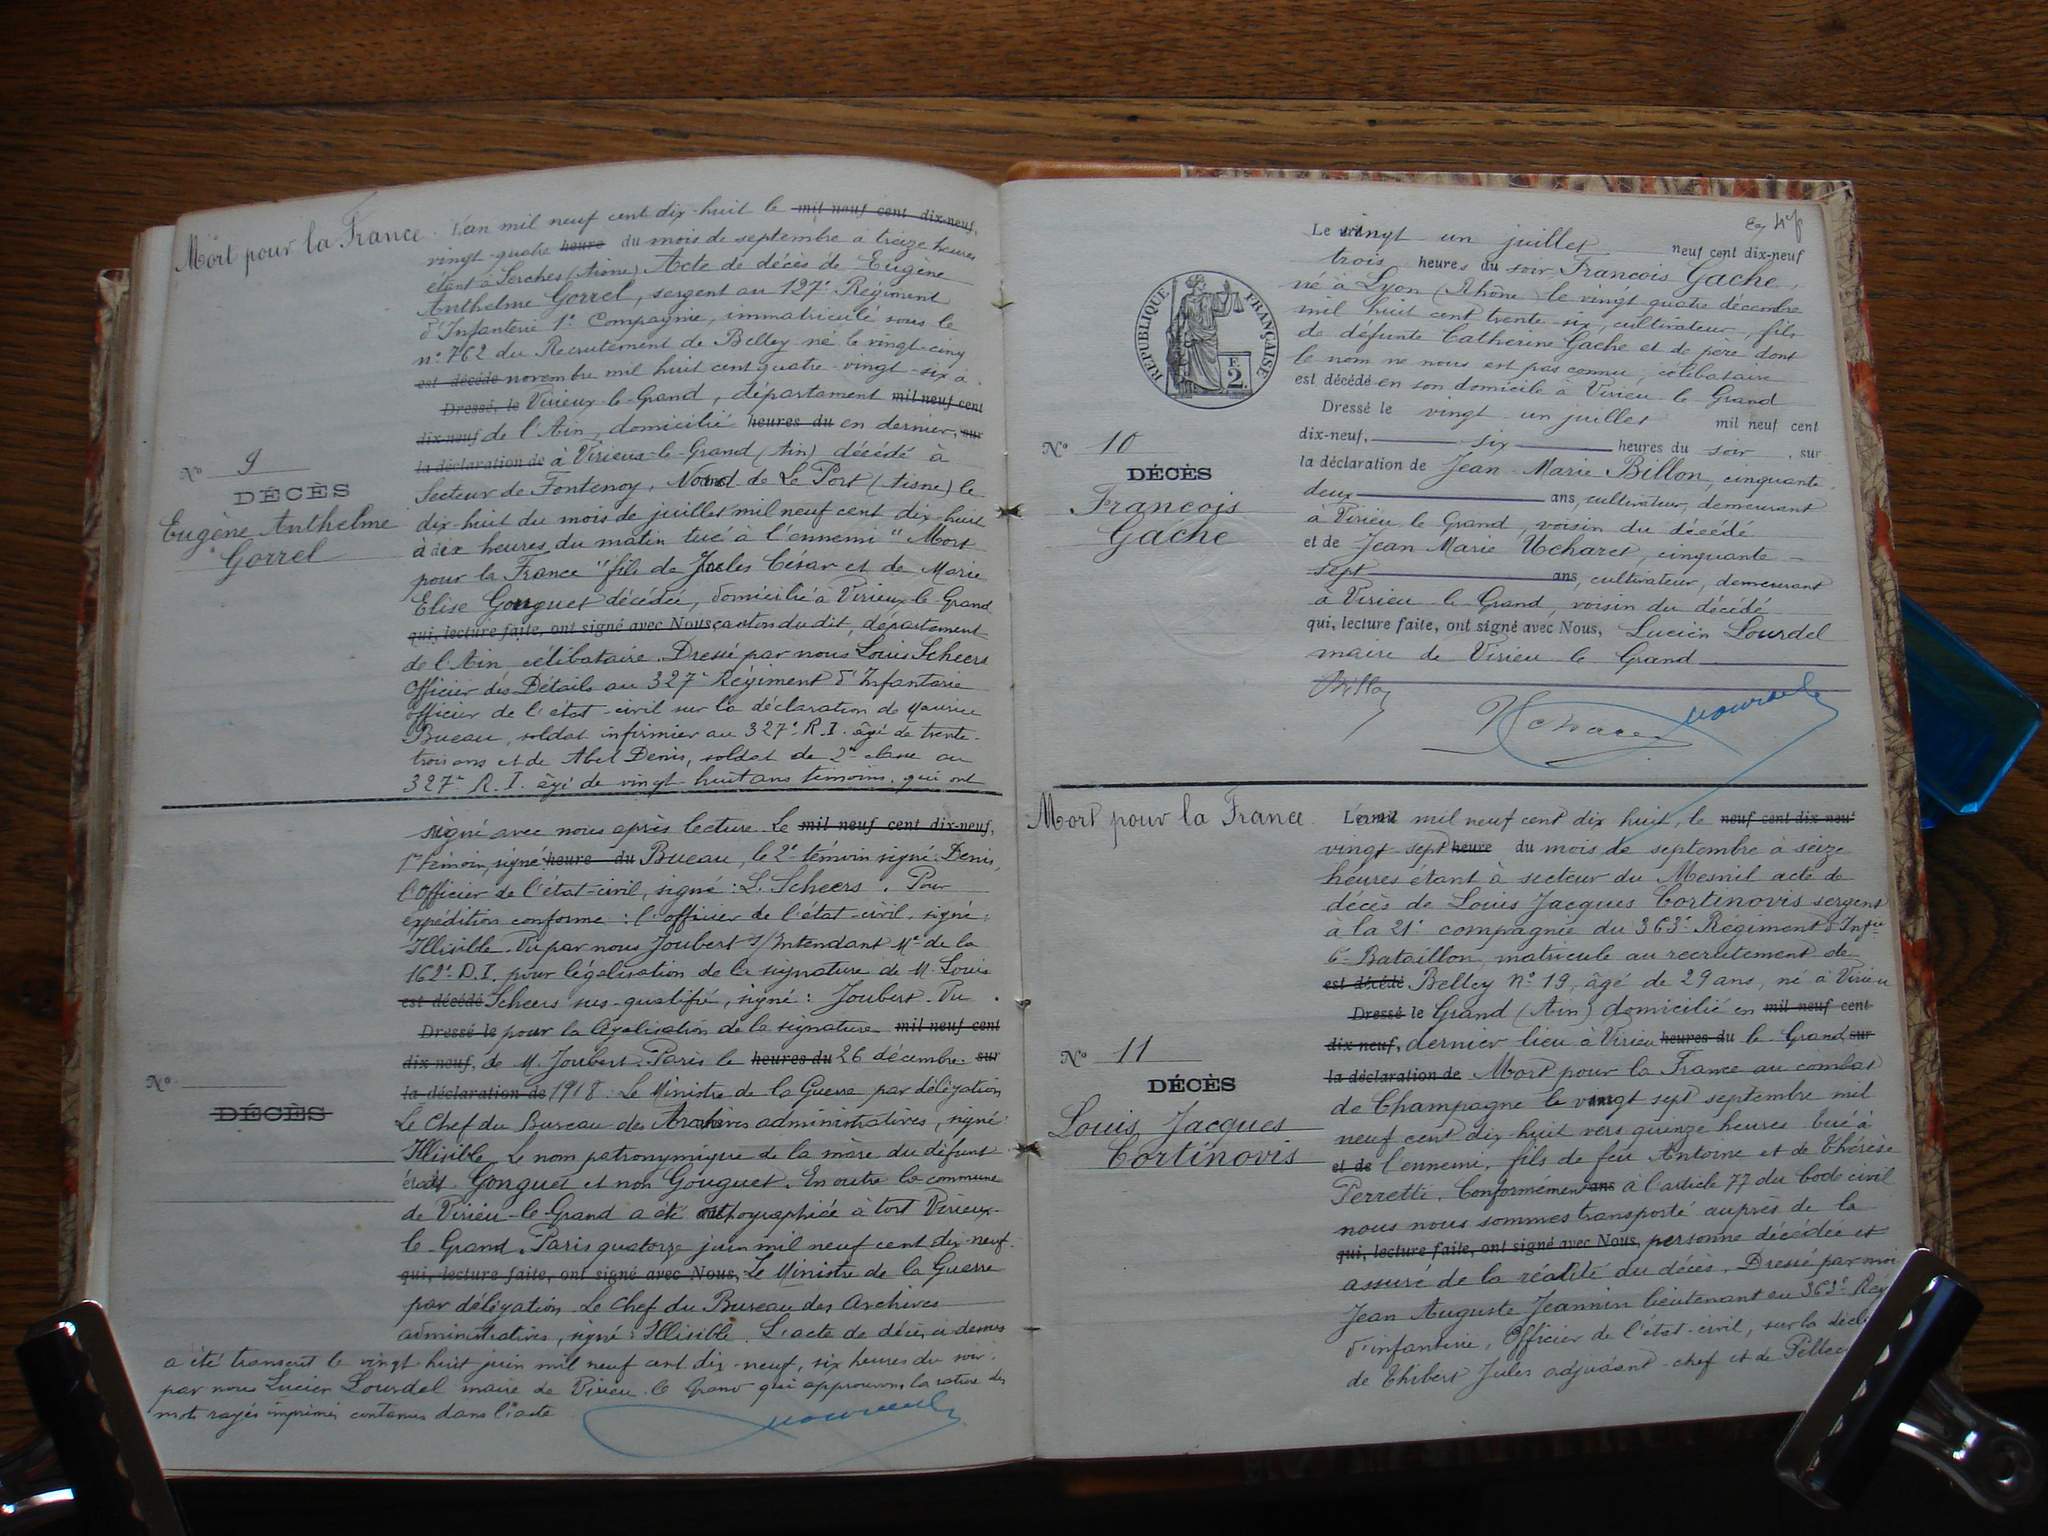 Mort pour la France.
L'an mil neuf cent dix-huit le mil neuf cent dix-neuf,
vingt-quatre heure du mois de septembre à treize heures
étant à Serches (Aisne) Acte de décès de Eugène
Anthelme Gorrel, sergent au 127e Régiment
d'Infanterie 1e Compagnie, immatriculé sous le
n° 762 du Recrutement de Belley né le vingt-cinq
est décédé novembre mil huit cent quatre-vingt-six à
Dressé, le Virieux-le-Grand, département mil neuf cent
dix-neuf de l'Ain, domicilié heures du en dernier, sur
la déclaration de à Virieux-le-Grand (Ain) décédé à
Secteur de Fontenoy, Nord de Le Port (Aisne) le
dix-huit du mois de juillet mil neuf cent dix-huit
à dix heures du matin tué à l'ennemi "Mort
pour la France" fils de Jules César et de Marie
Elise Gouguet décédée, domicilié à Virieux-le-Grand
qui, lecture faite, ont signé avec Nous canton du dit, département
de l'Ain célibataire. Dressé par nous Louis Scheers
Officier des Détails au 327e Régiment d'Infanterie
officier de l'état-civil sur la déclaration de Maurice
Bueau, soldat infirmier au 327e R.I. âgé de trente-
trois ans et de Abel Denis, soldat de 2e classe au
327e R.I. âgé de vingt-huit ans témoins, qui ont
N° 9
DÉCÈS
Eugène Anthelme
Gorrel
signé avec nous après lecture. Le mil neuf cent dix-neuf,
1er témoin, signé: heure du Bueau, le 2e témoin signé: Denis,
l'Officier de l'état-civil, signé: L. Scheers. Pour
expédition conforme: l'officier de l'état-civil, signé:
Illisible. Vu par nous Joubert S/Intendant Mre de la
162e D.I. pour légalisation de la signature de M. Louis
est décédé Scheers sus-qualifié, signé: Joubert. Vu
Dressé le pour la légalisation de la signature mil neuf cent
dix-neuf, de M. Joubert. Paris le heures du 26 décembre sur
la déclaration de 1918. Le Ministre de la Guerre par délégation
Le Chef du Bureau des Archives administratives, signé:
Illisible. Le nom patronymique de la mère du défunt
était Gonguet et non Gouguet. En outre la commune
de Virieu-le-Grand a été orthographiée à tort Virieux-
le-Grand. Paris quatorze juin mil neuf cent dix-neuf.
qui, lecture faite, ont signé avec Nous, Le Ministre de la Guerre
par délégation. Le Chef du Bureau des Archives
administratives, signé: Illisible. L'acte de décès ci-dessus
a été transcrit le vingt-huit juin mil neuf cent dix-neuf, six heures du soir.
par nous Lucien Lourdel maire de Virieu-le-Grand qui approuvons la rature des
mots rayés imprimés contenus dans l'acte
N°
DÉCÈS
RÉPUBLIQUE FRANÇAISE
F. 2.
N° 10
DÉCÈS
François
Gache
Le vingt un juillet neuf cent dix-neuf
trois heures du soir, François Gache,
né à Lyon (Rhône) le vingt quatre décembre
mil huit cent trente-six, cultivateur, fils
de défunte Catherine Gache et de père dont
le nom ne nous est pas connu, célibataire
est décédé en son domicile à Virieu le Grand
Dressé le vingt un juillet mil neuf cent
dix-neuf, six heures du soir, sur
la déclaration de Jean-Marie Billon, cinquante
deux ans, cultivateur, demeurant
à Virieu le Grand, voisin du décédé
et de Jean Marie Ucharet, cinquante
sept ans, cultivateur, demeurant
à Virieu-le-Grand, voisin du décédé
qui, lecture faite, ont signé avec Nous, Lucien Lourdel
maire de Virieu le Grand
Mort pour la France.
L'an mil neuf cent dix huit, le neuf cent dix-neuf
vingt-sept heure du mois de septembre à seize
heures étant à secteur du Mesnil acte de
décès de Louis Jacques Cortinovis sergent
à la 21e compagnie du 363e Régiment d'Infie
6e Bataillon, matricule au recrutement de
est décédé Belley N° 19, âgé de 29 ans, né à Virieu
Dressé le Grand (Ain) domicilié en mil neuf cent
dix-neuf, dernier lieu à Virieu heures du le Grand sur
la déclaration de Mort pour la France au combat
de Champagne le vingt sept septembre mil
neuf cent dix-huit vers quinze heures tué à
et de l'ennemi, fils de feu Antoine et de Thérèse
Perretti. Conformément ans à l'article 77 du Code civil
nous nous sommes transporté auprès de la
qui, lecture faite, ont signé avec Nous, personne décédée et
assuré de la réalité du décès. Dressé par moi
Jean Auguste Jeannin lieutenant au 363e Rég
d'infanterie, Officier de l'état-civil, sur la décl
de Thibert Jules adjudant-chef et de
N° 11
DÉCÈS
Louis Jacques
Cortinovis